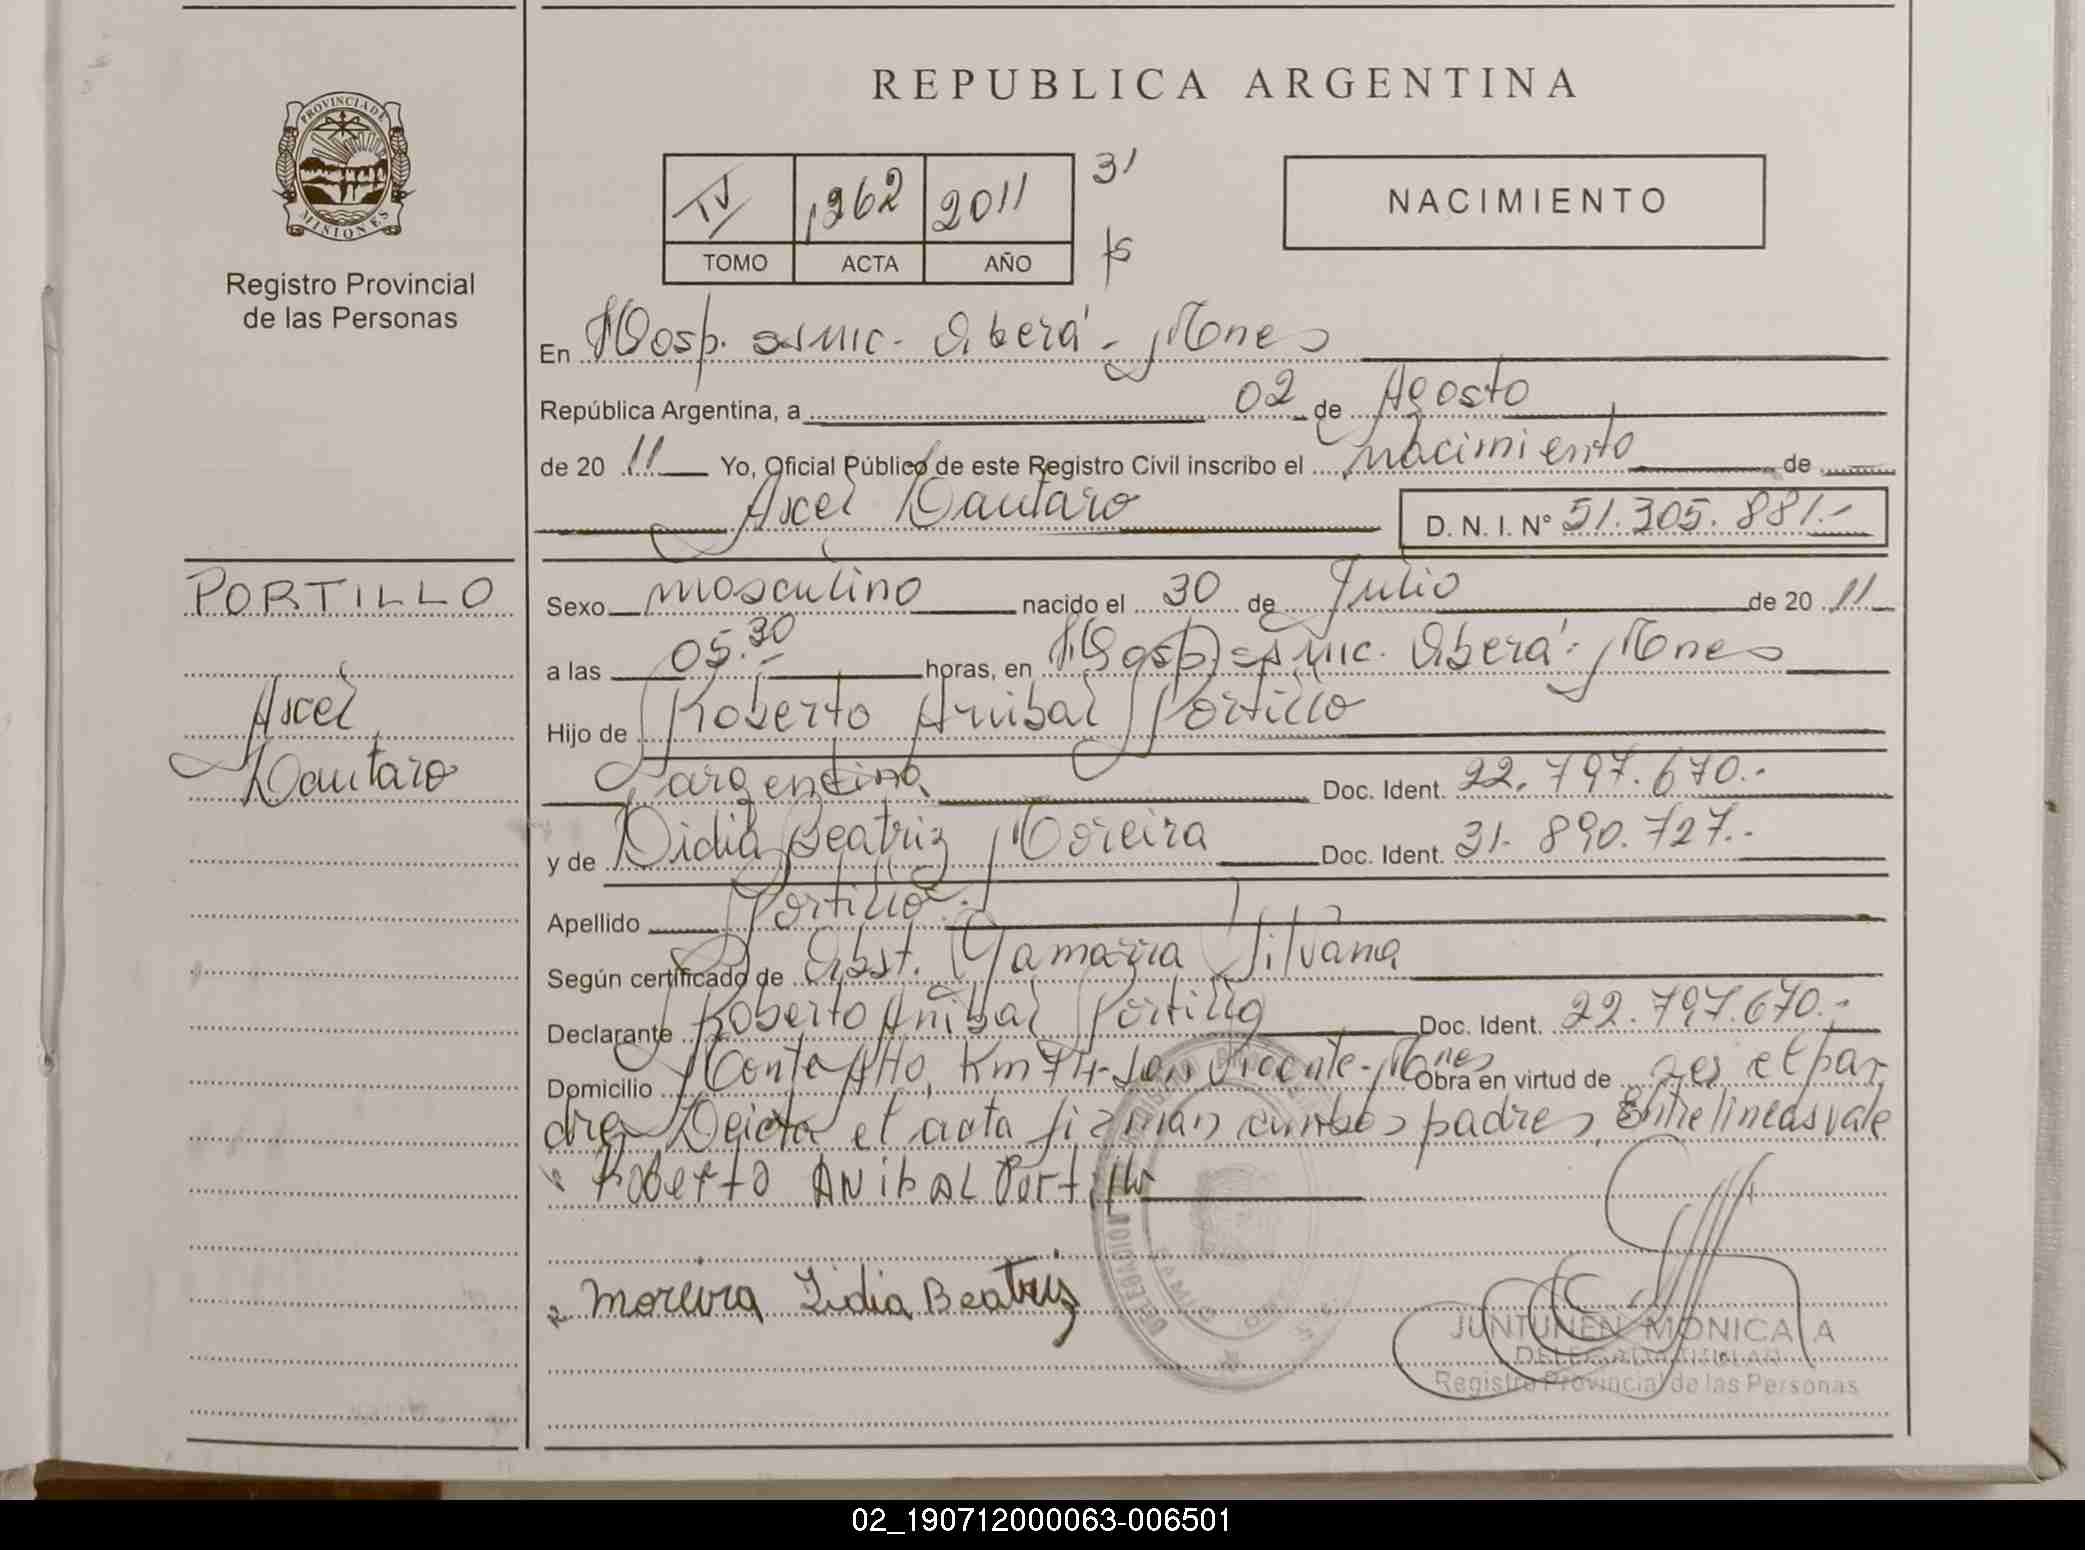 REPUBLICA ARGENTINA
PROVINCIA DE MISIONES
Registro Provincial
de las Personas
IV 1262 2011
TOMO ACTA AÑO
NACIMIENTO
En Hosp. SAMIC. Oberá - Mnes
República Argentina, a 02 de Agosto
de 20 11 Yo, Oficial Público de este Registro Civil inscribo el nacimiento de
Axcel Lautaro D. N. I. N° 51.305.881.-
PORTILLO
Axcel
Lautaro
Sexo masculino nacido el 30 de Julio de 20 11
a las 05.30 horas, en Hosp. SAMIC. Oberá - Mnes
Hijo de Roberto Anibal Portillo
argentino Doc. Ident. 22.797.670.-
y de Lidia Beatriz Moreira Doc. Ident. 31.890.727.-
Apellido Portillo.
Según certificado de Obst. Gamarra Silvana
Declarante Roberto Anibal Portillo Doc. Ident. 22.797.670.-
Domicilio Monte Alto, Km 74 - San Vicente - Mnes Obra en virtud de ser el pa-
dre Leida el acta firman ambos padres. Entrelineas vale
Roberto ANibAL Portillo
Moreira Lidia Beatriz
JUNTUNEN MONICA A
DELEGADA TITULAR
Registro Provincial de las Personas
02_190712000063-006501